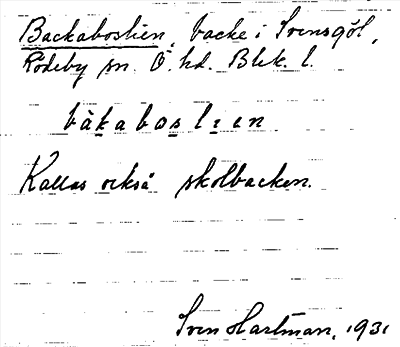 Backaboslien, backe i Svensgöl,
Rödeby sn. Ö. hd. Blek. l.
bàkabosl:en
Kallas också skolbacken.
Sven Hartman, 1931